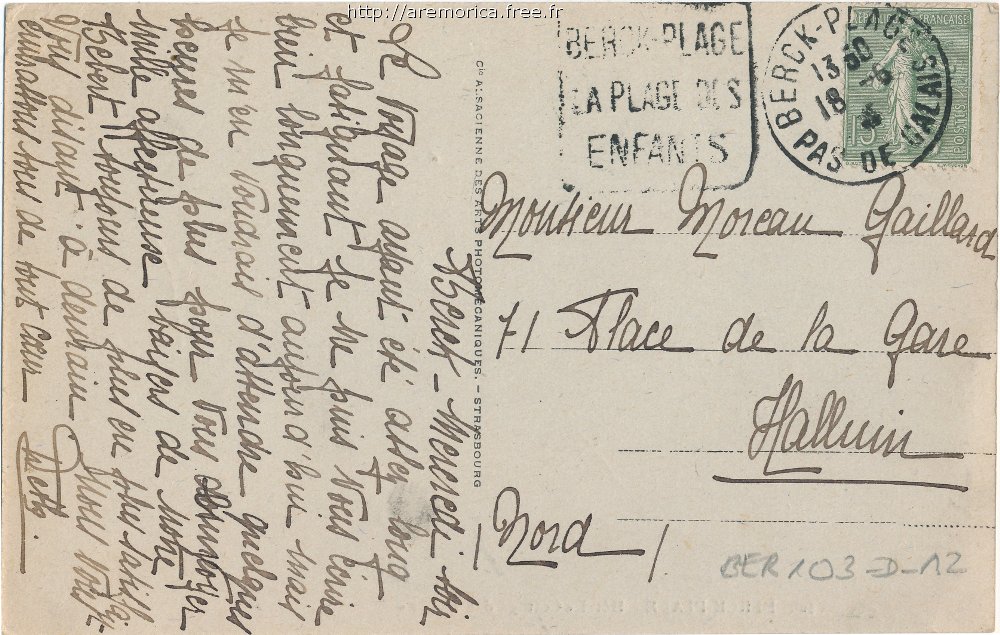 http://aremorica.free.fr
BERCK-PLAGE
LA PLAGE DES
ENFANTS
BERCK-PLAGE
13 30
18 -6
PAS DE CALAIS
RÉPUBLIQUE FRANÇAISE
POSTES
Monsieur Moreau Gaillard
71 Place de la Gare
Halluin
(Nord)
BER 103-D-12
Cie ALSACIENNE DES ARTS PHOTOMÉCANIQUES. - STRASBOURG
Berck - Mercredi soir
Le voyage ayant été assez long
et fatiguant je ne puis vous écrire
bien longuement aujourd'hui mais
je m'en voudrais d'attendre quelques
heures de plus pour vous envoyer
mille affectueux baisers de notre
Bébert toujours de plus en plus
Vous disant à demain nous vous
embrassons de tout cœur